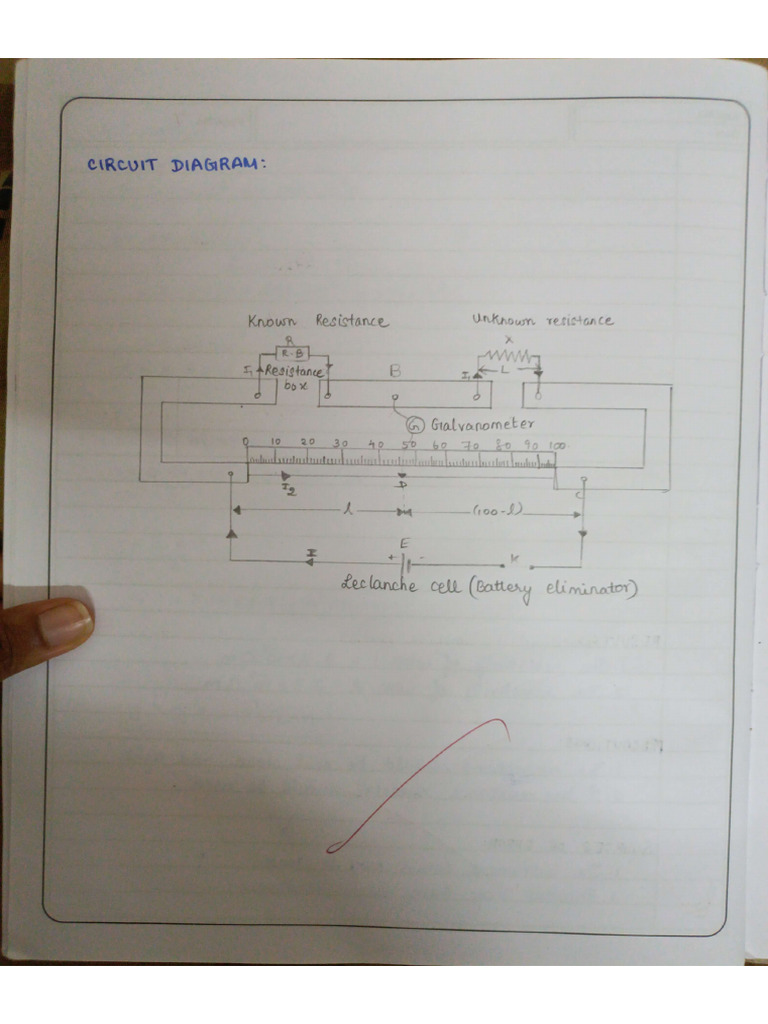 CIRCUIT DIAGRAM:
Known Resistance
Unknown resistance
R
R.B
X
I1
Resistance
box
B
I1
L
G
Galvanometer
0 10 20 30 40 50 60 70 80 90 100
I2
D
C
l
(100-l)
E
I
+
-
K
Leclanche cell (Battery eliminator)